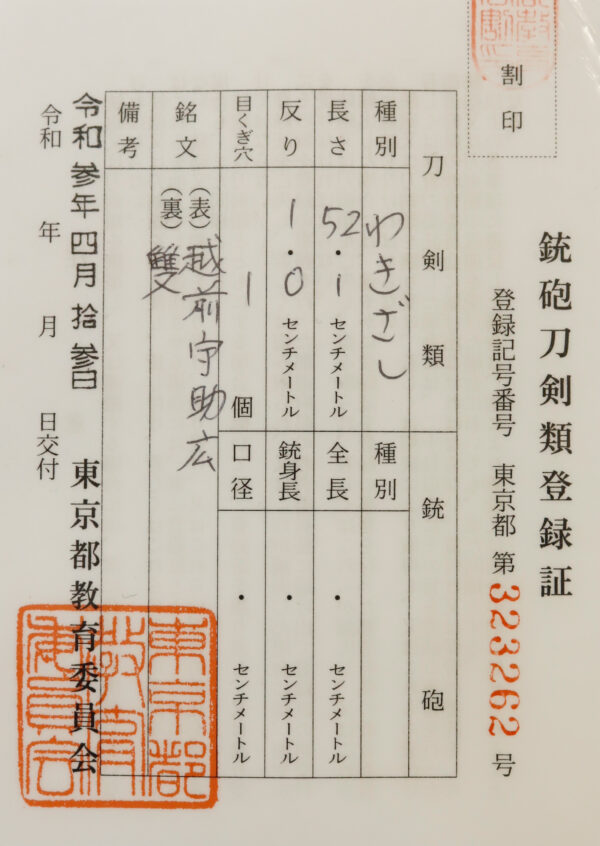 割印
銃砲刀剣類登録証
登録記号番号 東京都 第323262号
刀剣類
銃砲
種別
わきざし
種別
長さ
52・1センチメートル
全長
・ センチメートル
反り
1・0センチメートル
銃身長
・ センチメートル
目くぎ穴
1個
口径
・ センチメートル
銘文
(表)越前守助広
(裏)雙
備考
令和参年四月拾参日
令和 年 月 日交付
東京都教育委員会
東京都
教育
委員会